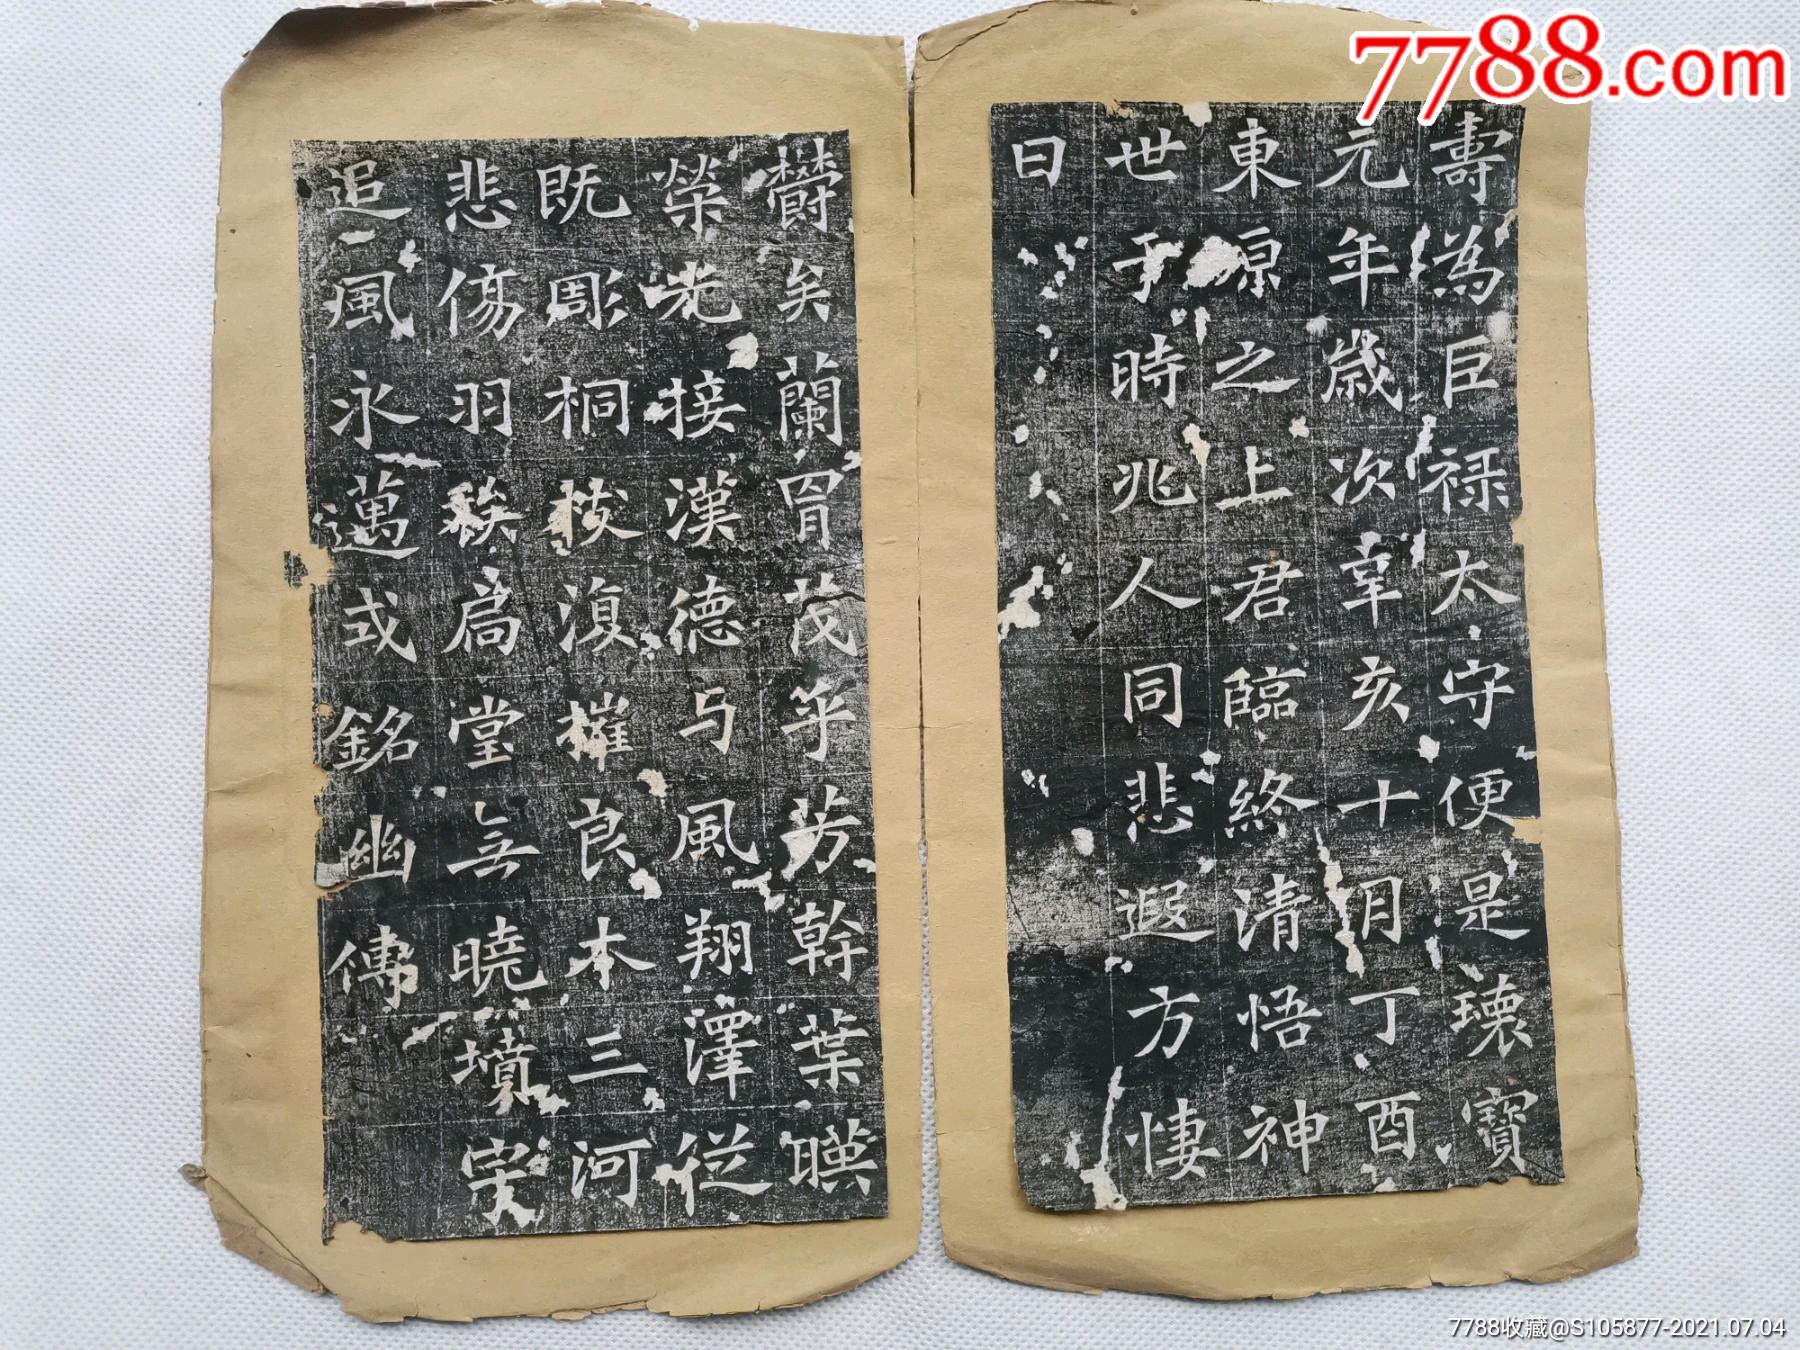 7788.com
壽為臣禄太守便是瓌寶
元年歲次辛亥十月丁酉
東原之上君臨終清悟神
世乎時兆人同悲遐方悽
曰
欝矣蘭胄茂乎芳幹葉暎
榮光接漢德与風翔澤從
既彫桐枝復摧良木三河
悲傷羽緱扃堂無曉墳宇
追風永邁式銘幽傳
7788收藏@S105877-2021.07.04